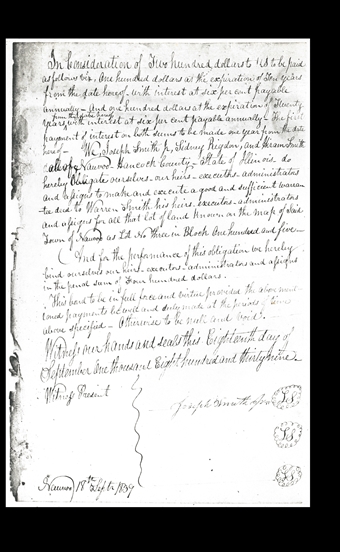 In Consideration of Two hundred dollars to us to be paid
as follows viz, One hundred dollars at the expiration of Ten years
from the date hereof - with interest at six per cent payable
annually - And one hundred dollars at the expiration of Twenty
from the date hereof
years, with interest at six per cent payable annually - The first
payment of interest on both sums to be made one year from the date
hereof - We, Joseph Smith Jr, Sidney Rigdon, and Hiram Smith
all of Nauvoo Hancock County - State of Illinois do
hereby Obligate ourselves - our heirs - executors - administrators
and assigns to make and execute a good and sufficient warran
-tee deed to Warren Smith his heirs - executors - administrators
and assigns for all that lot of land known on the map of said
Town of Nauvoo as Lot No three in Block One hundred and five -
And for the performance of this obligation we hereby
bind ourselves our heirs - executors - administrators and assigns
in the penal sum of Four hundred dollars.
This bond to be in full force and virtue provided the above men
tioned payments be well and duly made at the periods of time
above specified - Otherwise to be null and void.
Witness our hands and seals this Eighteenth day of
September One thousand Eight hundred and thirty nine -
Witness Present
Joseph Smith
LS
LS
LS
Nauvoo 18th Septr 1839